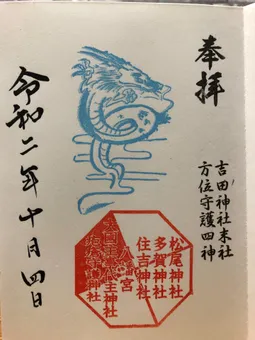 奉拝
吉田神社末社
方位守護四神
松尾神社
多賀神社
住吉神社
八幡宮
令和二年十月四日